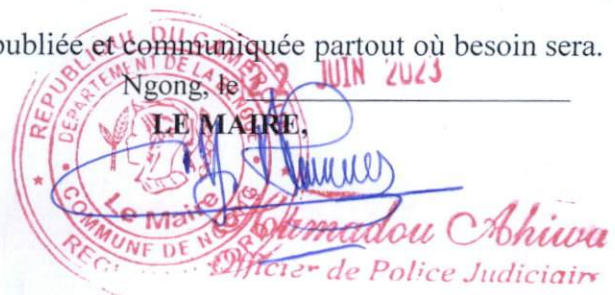 publiée et communiquée partout où besoin sera.
Ngong, le 22 JUIN 2023
LE MAIRE,
REPUBLIQUE DU CAMEROUN
DEPARTEMENT DE LA BENOUE
Le Maire
COMMUNE DE NGONG
Ahiwa
Officier de Police Judiciaire